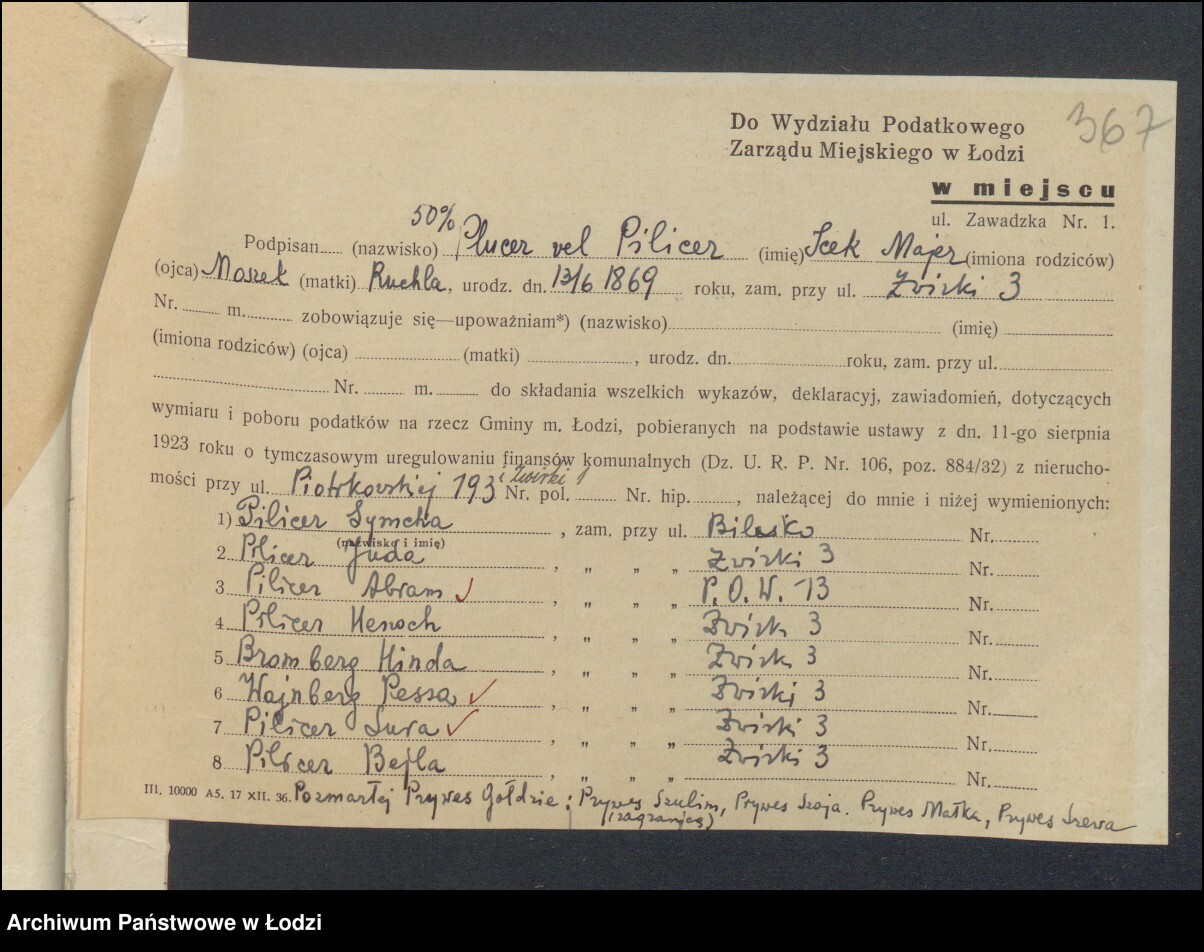 367
Do Wydziału Podatkowego
Zarządu Miejskiego w Łodzi
w miejscu
ul. Zawadzka Nr. 1.
50%
Podpisan (nazwisko) Plucer vel Pilicer (imię) Icek Majer (imiona rodziców)
(ojca) Moszek (matki) Ruchla, urodz. dn. 13/6 1869 roku, zam. przy ul. Żwirki 3
Nr. m. zobowiązuje się—upoważniam*) (nazwisko) (imię)
(imiona rodziców) (ojca) (matki) , urodz. dn. roku, zam. przy ul.
Nr. m. do składania wszelkich wykazów, deklaracyj, zawiadomień, dotyczących
wymiaru i poboru podatków na rzecz Gminy m. Łodzi, pobieranych na podstawie ustawy z dn. 11-go sierpnia
1923 roku o tymczasowym uregulowaniu finansów komunalnych (Dz. U. R. P. Nr. 106, poz. 884/32) z nierucho-
mości przy ul. Piotrkowskiej 193 i Żwirki 1 Nr. pol. Nr. hip. , należącej do mnie i niżej wymienionych:
1) Pilicer Symcha , zam. przy ul. Bilsko Nr.
(nazwisko i imię)
2 Pilicer Juda , „ „ „ Żwirki 3 Nr.
3 Pilicer Abram , „ „ „ P. O. W. 13 Nr.
4 Pilicer Henoch , „ „ „ Żwirk 3 Nr.
5 Bromberg Hinda , „ „ „ Żwirk 3 Nr.
6 Wajnberg Pessa , „ „ „ Żwirki 3 Nr.
7 Pilicer Sura , „ „ „ Żwirki 3 Nr.
8 Pilicer Bejla , „ „ „ Żwirki 3 Nr.
III. 10000 A5. 17 XII. 36. Pozmarłej Prywes Gołdzie: Prywes Szulim, Prywes Szoja. Prywes Małka, Prywes Szewa
(zagranicą)
Archiwum Państwowe w Łodzi